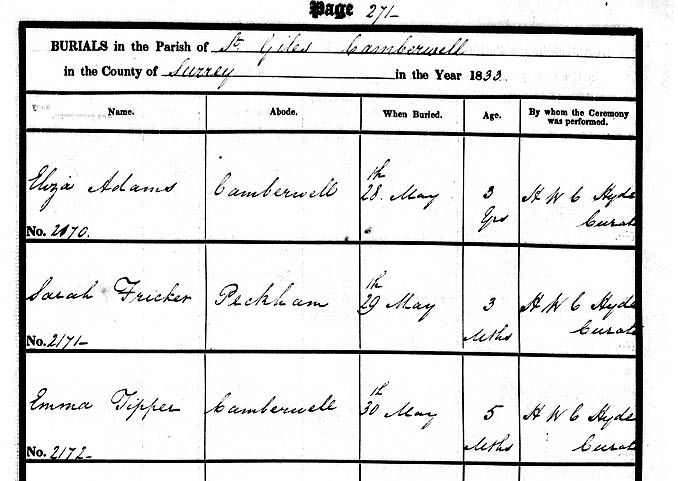 Page 271-
BURIALS in the Parish of St. Giles Camberwell
in the County of Surrey in the Year 1833.
Name. Abode. When Buried. Age. By whom the Ceremony was performed.
Eliza Adams Camberwell 28th May 3 Yrs H W C Hyde Curate
No. 2170.
Sarah Fricker Peckham 29th May 3 Mths H W C Hyde Curate
No. 2171-
Emma Tipper Camberwell 30th May 5 Mths H W C Hyde Curate
No. 2172-